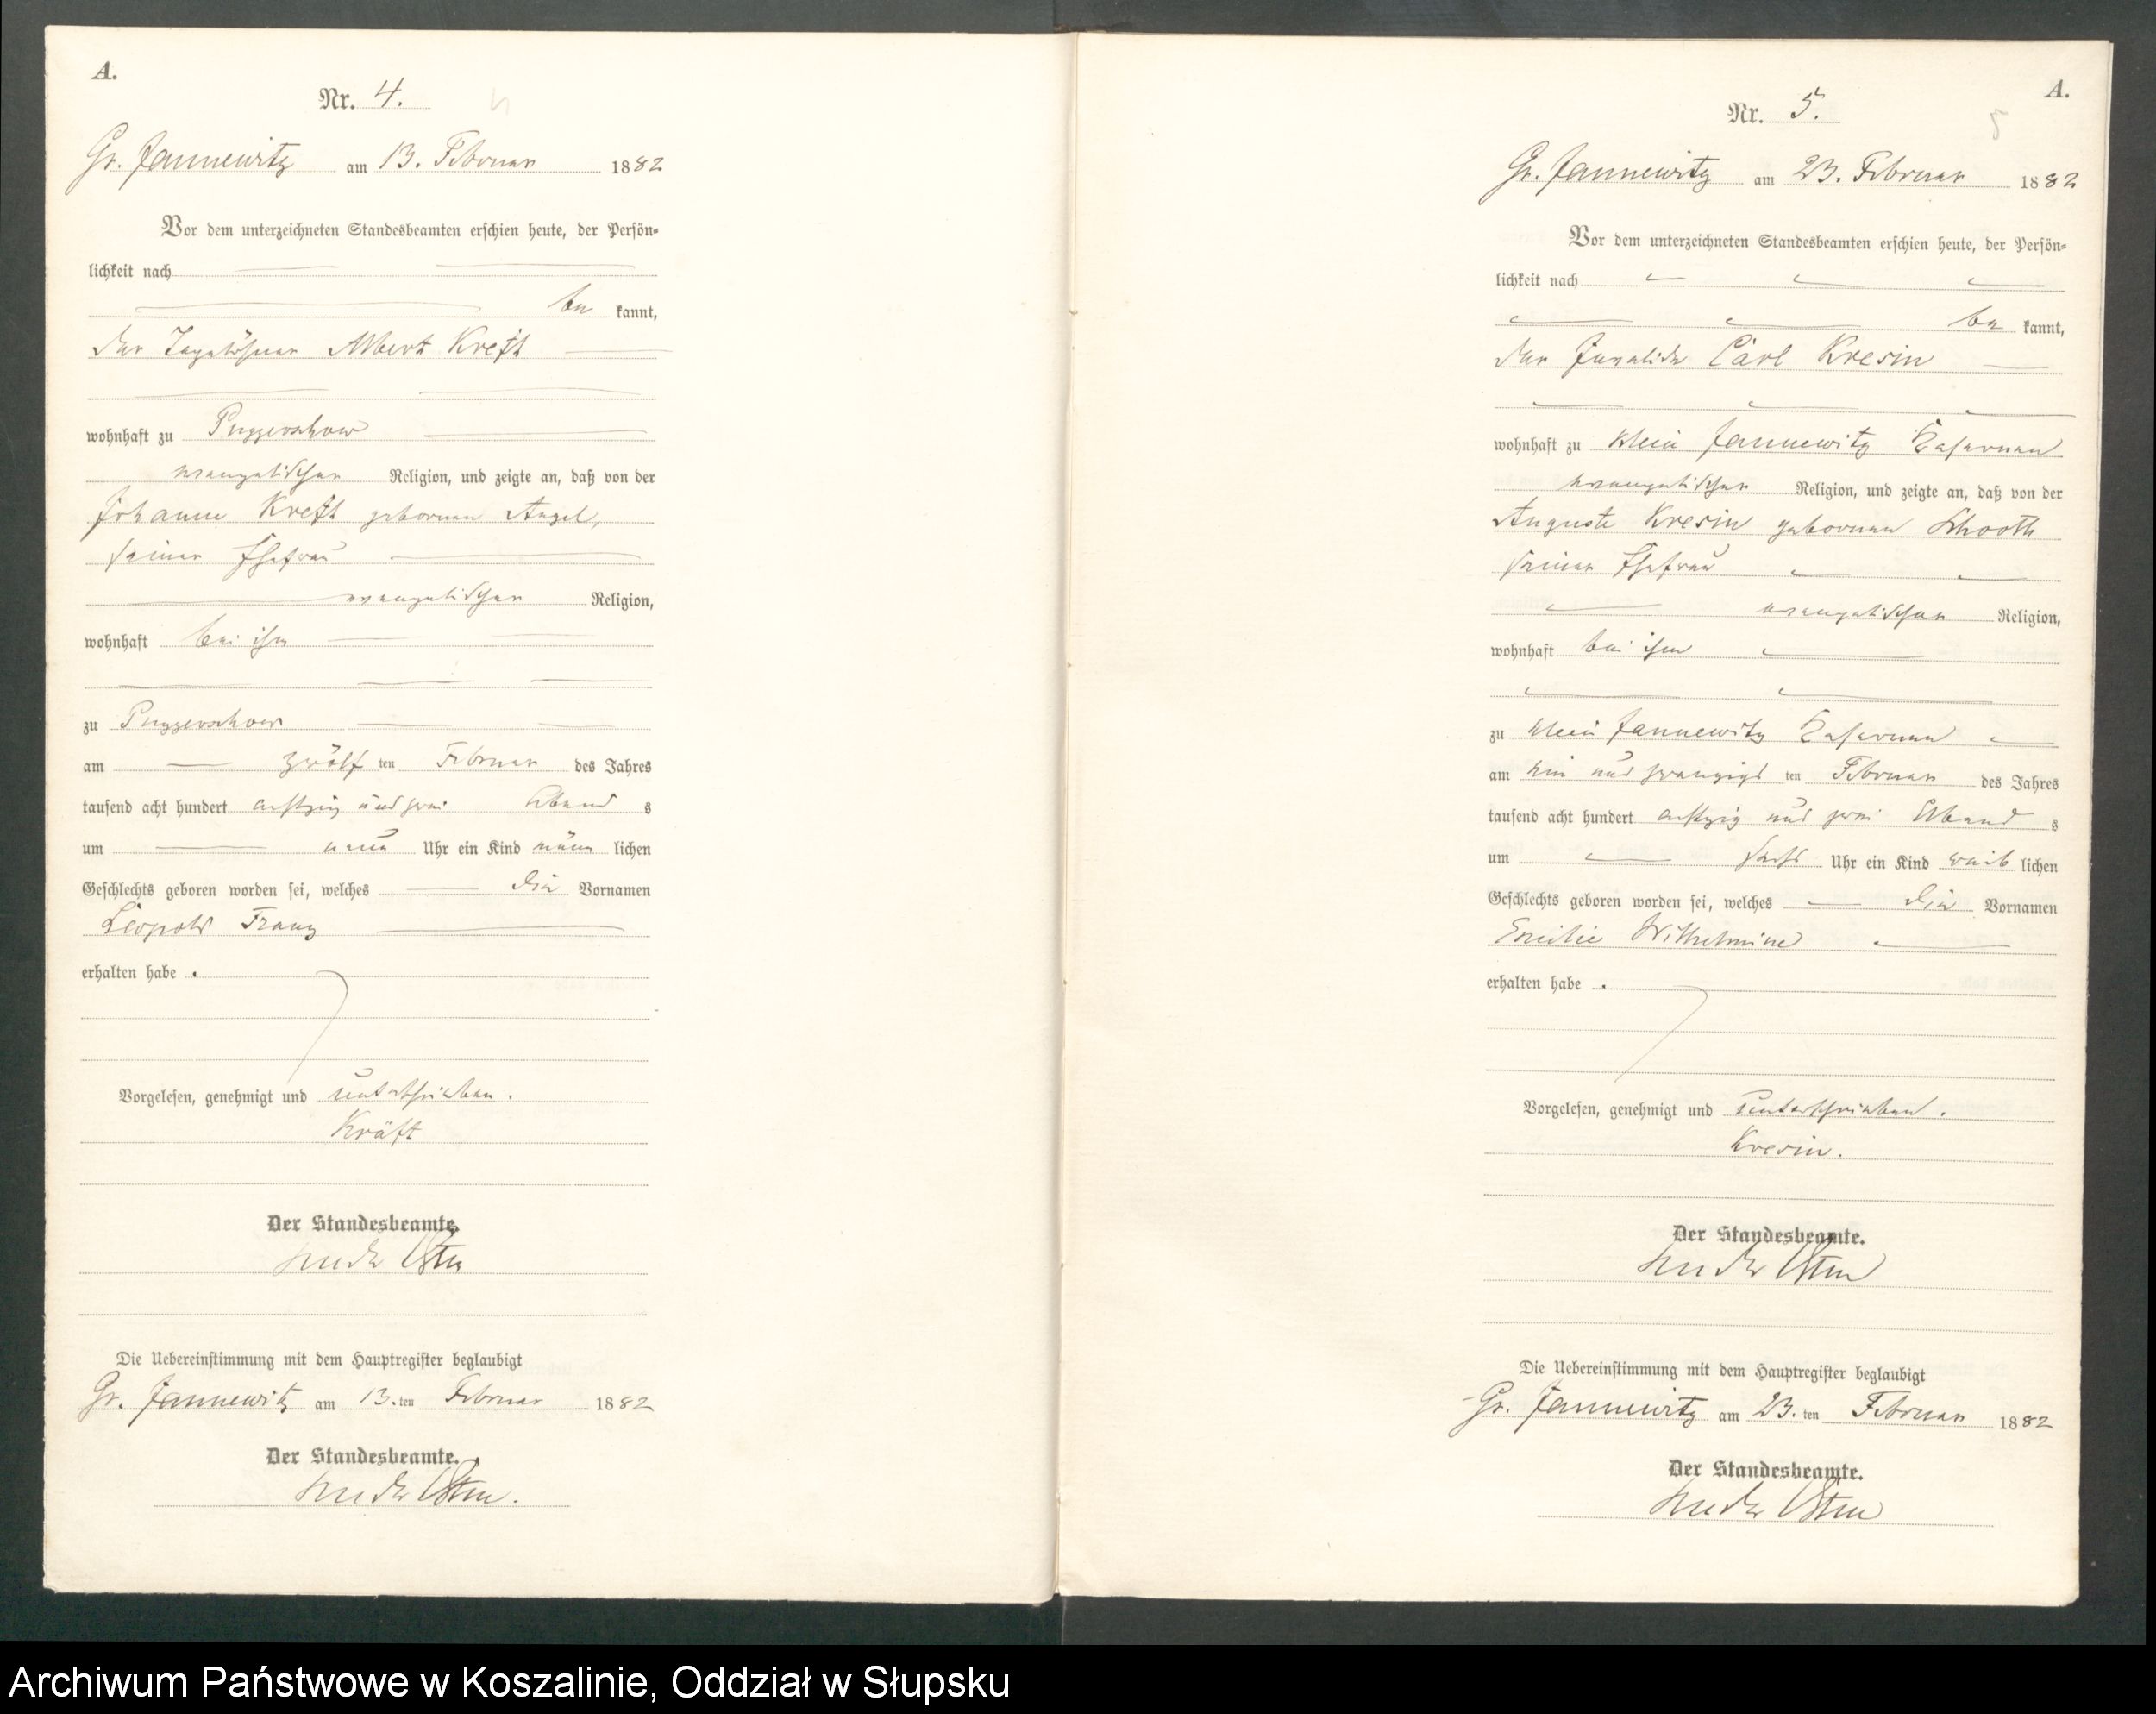 A.
Nr. 4.
4
Gr. Jannewitz am 13. Februar 1882
Vor dem unterzeichneten Standesbeamten erschien heute, der Persön-
lichkeit nach
be kannt,
der Tagelöhner Albert Kreft
wohnhaft zu Puggerschow
evangelischer Religion, und zeigte an, daß von der
Johanne Kreft geborenen Angel,
seiner Ehefrau
evangelischer Religion,
wohnhaft bei ihm
zu Puggerschow
am zwölf ten Februar des Jahres
tausend acht hundert achtzig und zwei Abend s
um neun Uhr ein Kind männ lichen
Geschlechts geboren worden sei, welches die Vornamen
Leopold Franz
erhalten habe .
Vorgelesen, genehmigt und unterschrieben.
Kräft
Der Standesbeamte.
von der Osten
Die Uebereinstimmung mit dem Hauptregister beglaubigt
Gr. Jannewitz am 13. ten Februar 1882
Der Standesbeamte.
von der Osten.
A.
Nr. 5.
5
Gr. Jannewitz am 23. Februar 1882
Vor dem unterzeichneten Standesbeamten erschien heute, der Persön-
lichkeit nach
be kannt,
der Invalide Carl Kresin
wohnhaft zu Klein Jannewitz
evangelischer Religion, und zeigte an, daß von der
Auguste Kresin geborenen Schooth
seiner Ehefrau
evangelischer Religion,
wohnhaft bei ihm
zu Klein Jannewitz
am ein und zwanzigs ten Februar des Jahres
tausend acht hundert achtzig und zwei Abend s
um sechs Uhr ein Kind weib lichen
Geschlechts geboren worden sei, welches die Vornamen
Emilie Wilhelmine
erhalten habe .
Vorgelesen, genehmigt und unterschrieben.
Kresin.
Der Standesbeamte.
von der Osten
Die Uebereinstimmung mit dem Hauptregister beglaubigt
Gr. Jannewitz am 23. ten Februar 1882
Der Standesbeamte.
von der Osten
Archiwum Państwowe w Koszalinie, Oddział w Słupsku